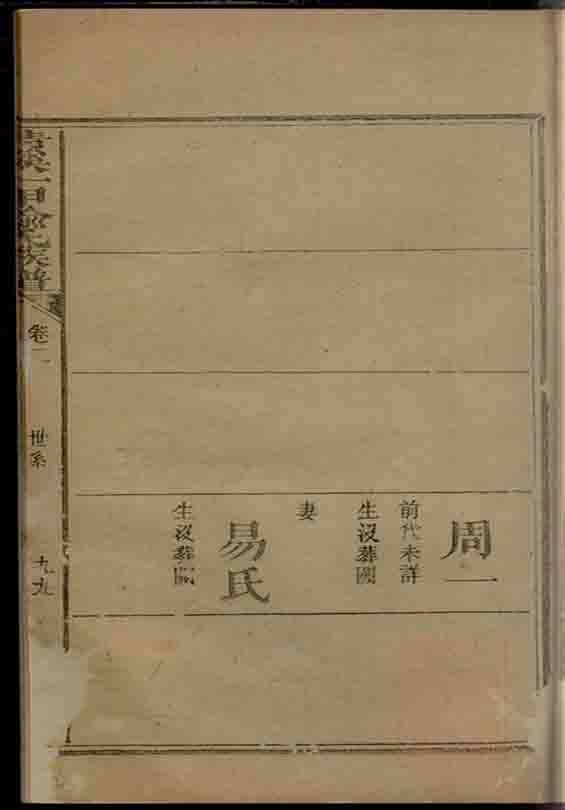 周一
前代未詳
生没葬闕
妻
易氏
生没葬闕
氏族譜
卷二
世系
九九